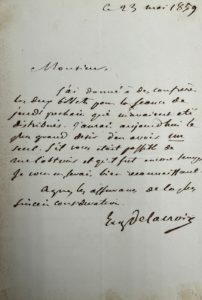 ce 23 mai 1859
Monsieur,
J'ai donné à des confrères
les deux billets pour la séance de
jeudi prochain qui m'avaient été
distribués. J'aurai aujourd'hui le
plus grand désir d'en avoir un
seul. S'il vous était possible de
me l'obtenir et qu'il fut encore temps
je vous en serais bien reconnaissant
Agréez les assurances de la plus
sincère considération.
Eug Delacroix